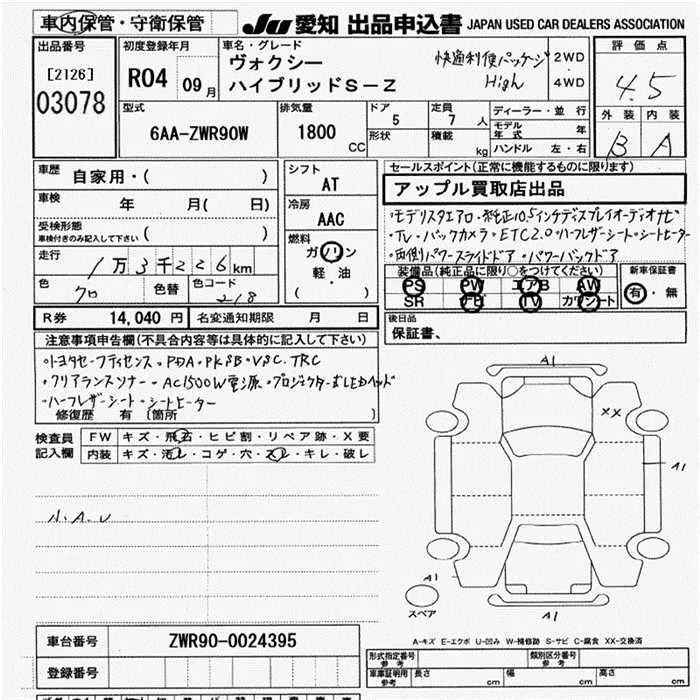 車内保管・守衛保管 JU 愛知 出品申込書 JAPAN USED CAR DEALERS ASSOCIATION
出品番号 初度登録年月 車名・グレード 評価点
[2126] R04 09月 ヴォクシー 快適利便パッケージ 2WD
03078 ハイブリッドS－Z High 4WD 4.5
型式 排気量 ドア 定員 ディーラー・並行 外装 内装
6AA-ZWR90W 1800 CC 5 7人 モデル年式 年 B A
形状 積載 kg ハンドル 左・右
車歴 自家用・( ) シフト AT セールスポイント (正常に機能するものに限ります)
車検 年 月( 日) 冷房 AAC アップル買取店出品
受検形態 ( ) ・モデリスタエアロ・純正10.5インチディスプレイオーディオナビ
車検付きのみ記入して下さい 燃料 ・TV・バックカメラ・ETC2.0・ハーフレザーシート・シートヒーター
走行 1万3千226km ガソリン ・両側パワースライドドア・パワーバックドア
軽・油 装備品(純正品に限り○をつけてください) 新車保証書
色 クロ 色替 色コード 218 ( ) PS PW エアB AW 有・無
SR TV カワシート
R券 14,040円 名変通知期限 月 日 後日品
保証書、
注意事項申告欄(不具合内容等は具体的に記入して下さい)
・トヨタセーフティセンス・PDA・PKSB・VSC.TRC
・クリアランスソナー・AC1500W電源・プロジェクター式LEDヘッド
・ハーフレザーシート・シートヒーター
修復歴 有 (箇所 )
A1
XX
検査員 FW キズ・飛石・ヒビ割・リペア跡・X要
記入欄 内装 キズ・汚レ・コゲ・穴・スレ・キレ・破レ
A1
小.A.U
A1
スペア
A1
A-キズ E-エクボ U-凹み W-補修跡 S-サビ C-腐食 XX-交換済
車台番号 ZWR90-0024395
形式指定番号 参考 類別区分番号 参考
登録番号 車庫証明用 参考 長さ cm 幅 cm 高さ cm